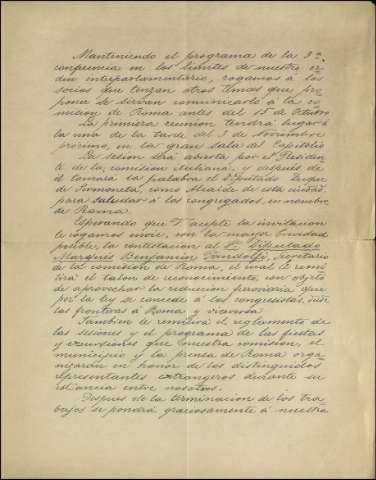 Manteniendo el programa de la 3ª
conferencia en los límites de nuestro or-
den interparlamentario, rogamos á los
socios que tengan otros temas que pro-
poner se sirvan comunicarlo á la co-
mision de Roma antes del 15 de Octubre
La primera reunion tendrá lugar á
la una de la tarde del 3 de Noviembre
próximo, en la gran sala del Capitolio
La sesion será abierta por el Presiden-
te de la comision Italiana. y despues de
el tomara la palabra el Diputado Duque
de Sermoneta, como Alcalde de esta ciudad,
para saludar á los congregados, en nombre
de Roma.
Esperando que V acepte la invitacion
le rogamos envie, con la mayor brevedad
posible la contestacion al Sr. Diputado
Marqués Benjamin Pandolfi, Secretario
de la comision de Roma, el cual le remi
tirá el talon de reconocimiento, con objeto
de aprovechar la reduccion ferroviaria que
por la ley se concede á los congresistas,
las fronteras á Roma y viceversa
Tambien le remitirá el reglamento de
las sesiones y el programa de las fiestas
y excursiones que nuestra comision, el
municipio y la prensa de Roma orga-
nizarán en honor de los distinguidos
representantes extrangeros durante su
estancia entre nosotros.
Despues de la terminacion de los tra-
bajos se pondrá graciosamente á nuestra